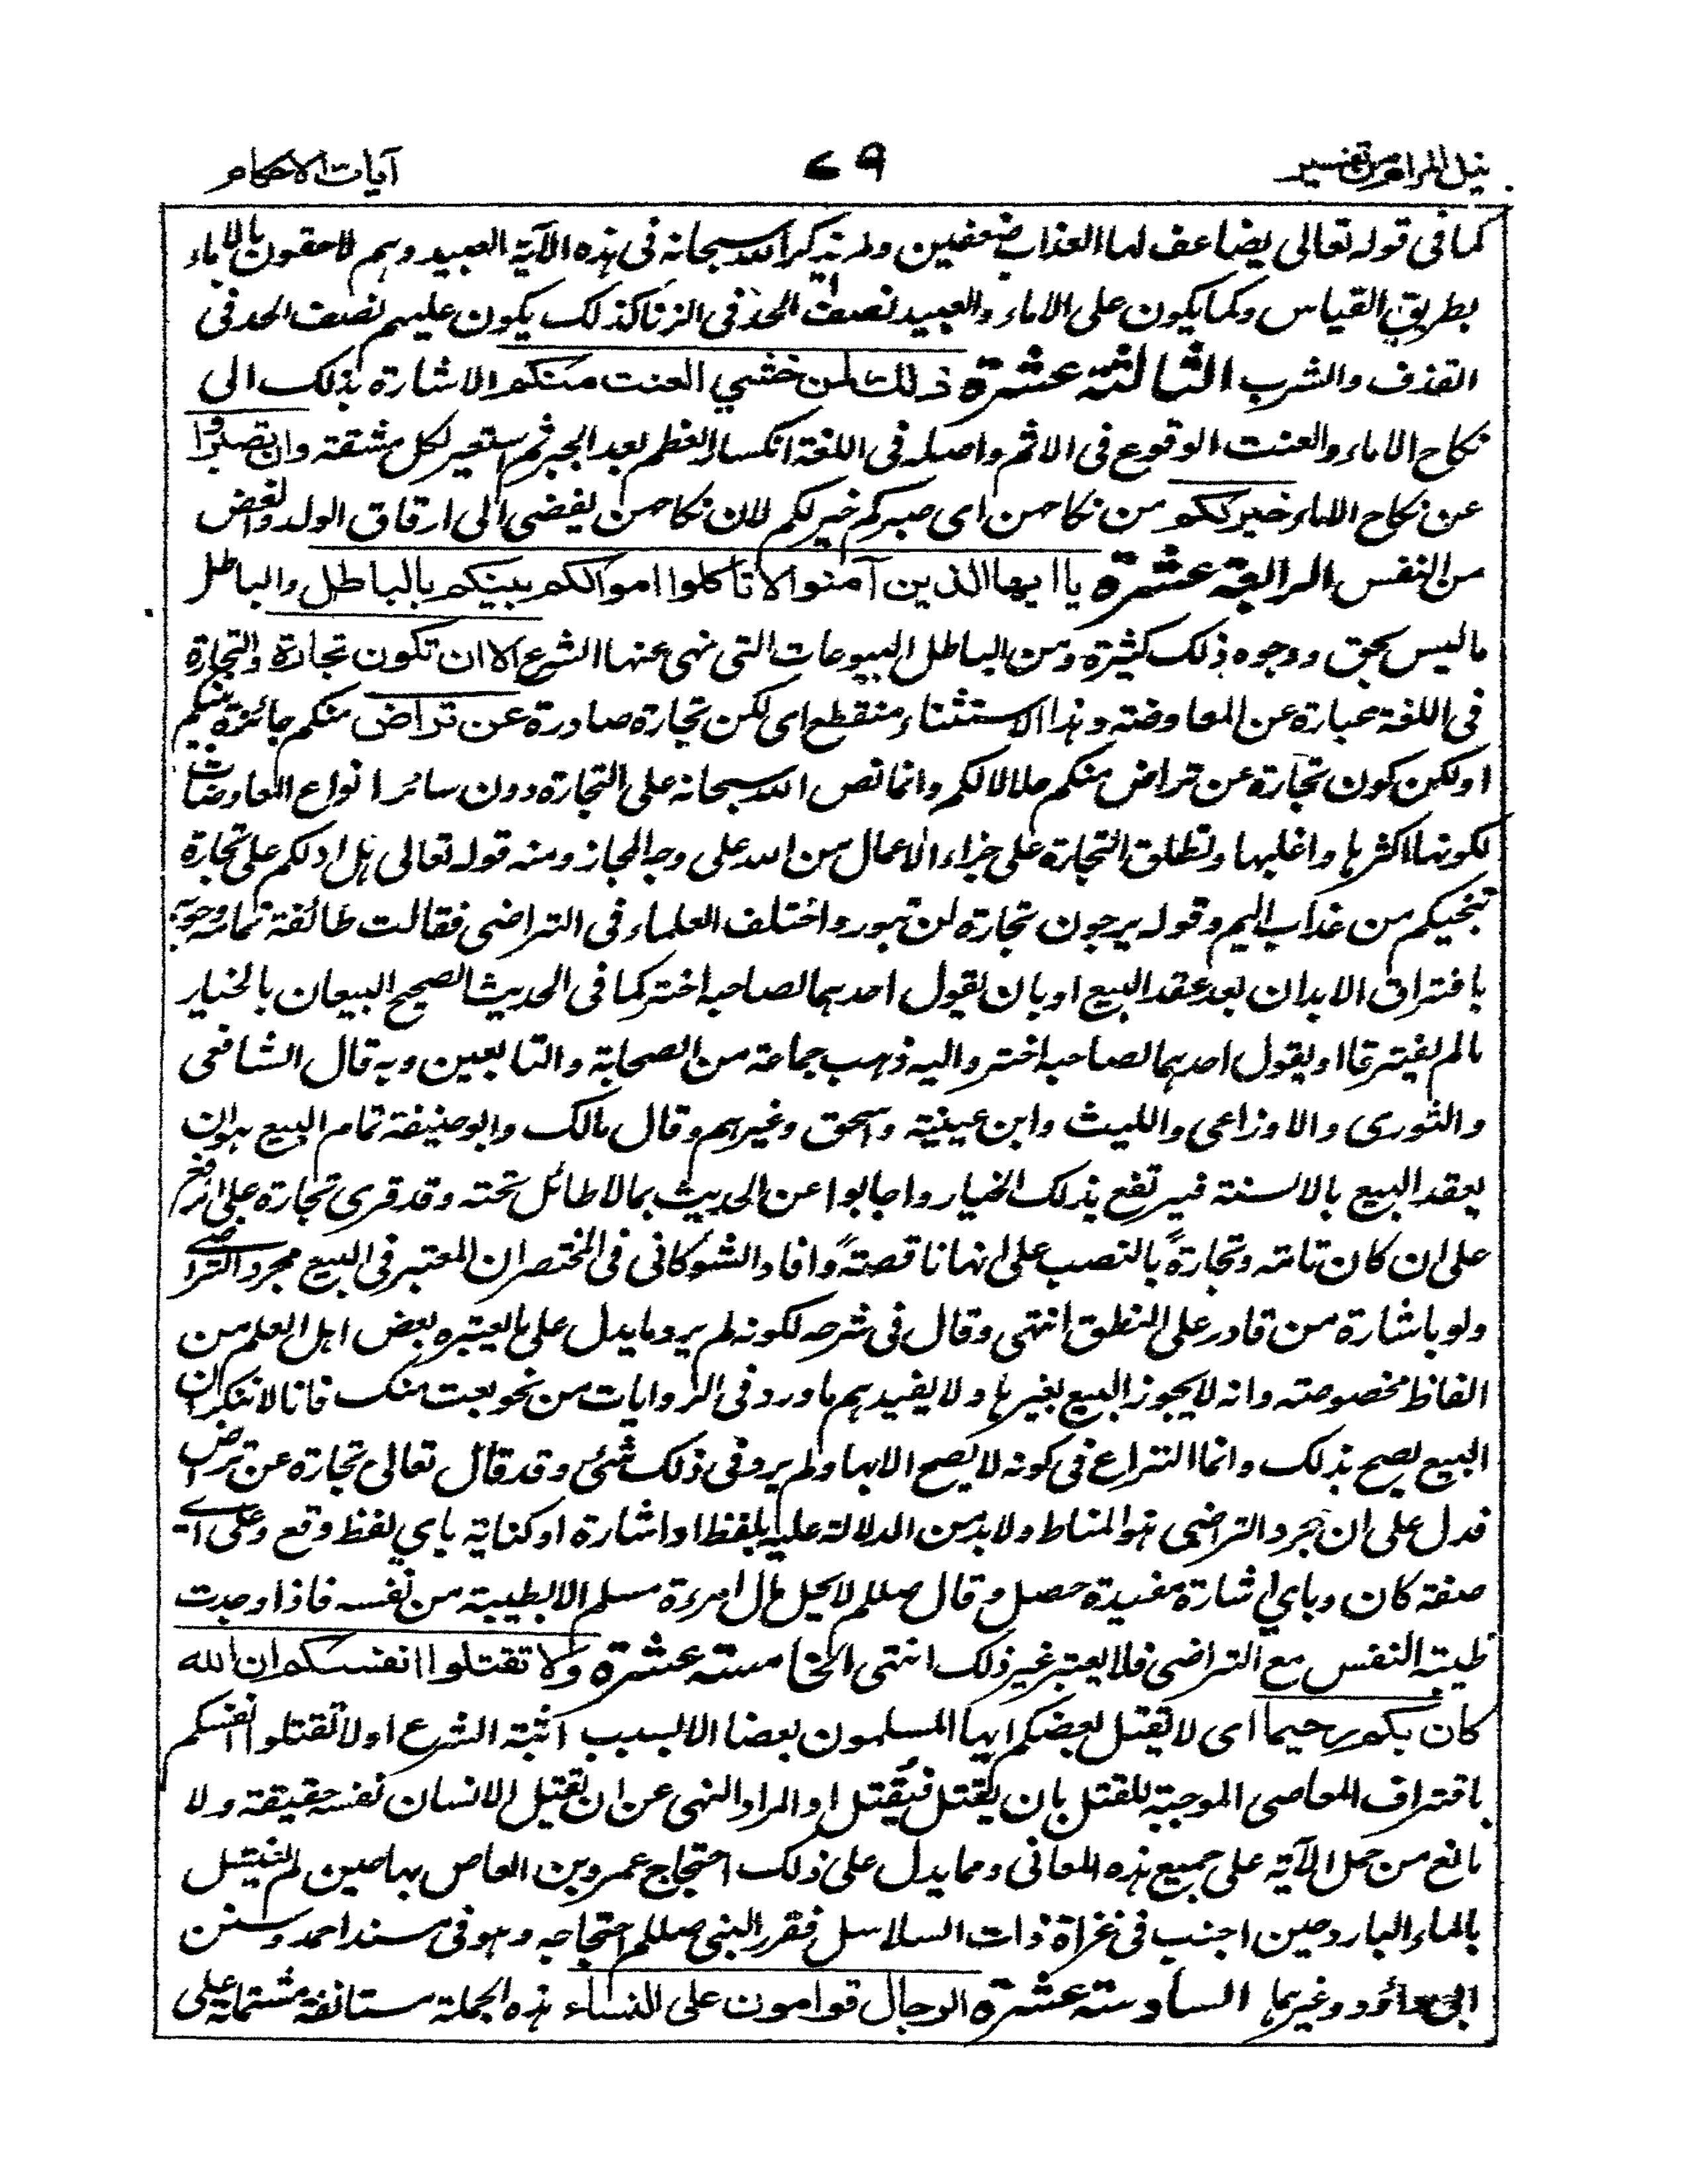 نيل المرام من تفسير
٧٩
آيات الاحكام
كما فى قوله تعالى يضاعف لها العذاب ضعفين ولم يذكر الله سبحانه فى هذه الآية العبيد وهم لاحقون بالاماء
بطريق القياس وكما يكون على الاماء والعبيد نصف الحد فى الزنا كذلك يكون عليهم نصف الحد فى
القذف والشرب الثالثة عشرة ذلك لمن خشي العنت منكم الاشارة بذلك الى
نكاح الاماء والعنت الوقوع فى الاثم واصله فى اللغة انكسار العظم بعد الجبر ثم استعير لكل مشقة وان تصبروا
عن نكاح الاماء خير لكم من نكاحهن اى صبركم خير لكم لان نكاحهن يفضى الى ارقاق الولد والغض
من النفس الرابعة عشرة يا ايها الذين آمنوا لا تأكلوا اموالكم بينكم بالباطل والباطل
ما ليس بحق ووجوه ذلك كثيرة ومن الباطل البيوعات التى نهى عنها الشرع الا ان تكون تجارة والتجارة
فى اللغة عبارة عن المعاوضة وهذا الاستثناء منقطع اى لكن تجارة صادرة عن تراض منكم جائزة بينكم
او لكن كون تجارة عن تراض منكم حلالا لكم وانما نص الله سبحانه على التجارة دون سائر انواع المعاوضات
لكونها اكثرها واغلبها وتطلق التجارة على جزاء الاعمال من الله على وجه المجاز ومنه قوله تعالى هل ادلكم على تجارة
تنجيكم من عذاب اليم وقوله يرجون تجارة لن تبور واختلف العلماء فى التراضى فقالت طائفة تمامه وجوبه
بافتراق الابدان بعد عقد البيع او بان يقول احدهما لصاحبه اختر كما فى الحديث الصحيح البيعان بالخيار
ما لم يفترقا او يقول احدهما لصاحبه اختر واليه ذهب جماعة من الصحابة والتابعين وبه قال الشافعى
والثورى والاوزاعى والليث وابن عيينة واسحق وغيرهم وقال مالك وابو حنيفة تمام البيع هو ان
يعقد البيع بالالسنة فيرتفع بذلك الخيار واجابوا عن الحديث بما لا طائل تحته وقد قرى تجارة على الرفع
على ان كان تامة وتجارةً بالنصب على انها ناقصةً وافاد الشوكانى فى المختصر ان المعتبر فى البيع مجرد التراضى
ولو باشارة من قادر على النطق انتهى وقال فى شرحه لكونه لم يرد ما يدل على ما يعتبره بعض اهل العلم من
الفاظ مخصوصة وانه لا يجوز البيع بغيرها ولا يفيدهم ما ورد فى الروايات من نحو بعت منك فانا لا ننكر ان
البيع يصح بذلك وانما النزاع فى كونه لا يصح الا بها ولم يرد فى ذلك شئ وقد قال تعالى تجارة عن تراض
فدل على ان مجرد التراضى هو المناط ولا بد من الدلالة عليه بلفظ او اشارة او كناية باي لفظ وقع وعلى اي
صفة كان وباي اشارة مفيدة حصل وقال صللم لا يحل مال امرءة مسلم الا بطيبة من نفسه فاذا وجدت
طيبة النفس مع التراضى فلا يعتبر غير ذلك انتهى الخامسة عشرة ولا تقتلوا انفسكم ان الله
كان بكم رحيما اى لا يقتل بعضكم ايها المسلمون بعضا الا بسبب اثبته الشرع او لا تقتلوا انفسكم
باقتراف المعاصى الموجبة للقتل بان يَقتل فيُقتل او المراد النهى عن ان يقتل الانسان نفسه حقيقة ولا
مانع من حمل الآية على جميع هذه المعانى ومما يدل على ذلك احتجاج عمرو بن العاص بها حين لم يغتسل
بالماء البارد حين اجنب فى غزاة ذات السلاسل فقرر النبى صللم احتجاجه وهو فى مسند احمد وسنن
ابى داؤد وغيرهما السادسة عشرة الرجال قوامون على النساء هذه الجملة مستانفة مشتملة على